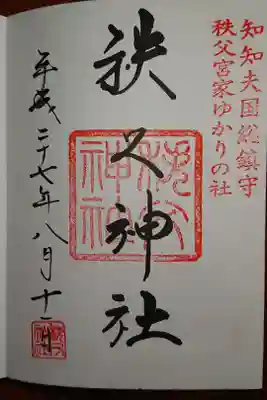 知知夫国総鎮守
秩父宮家ゆかりの社
秩父神社
平成二十七年八月十一日
秩父神社